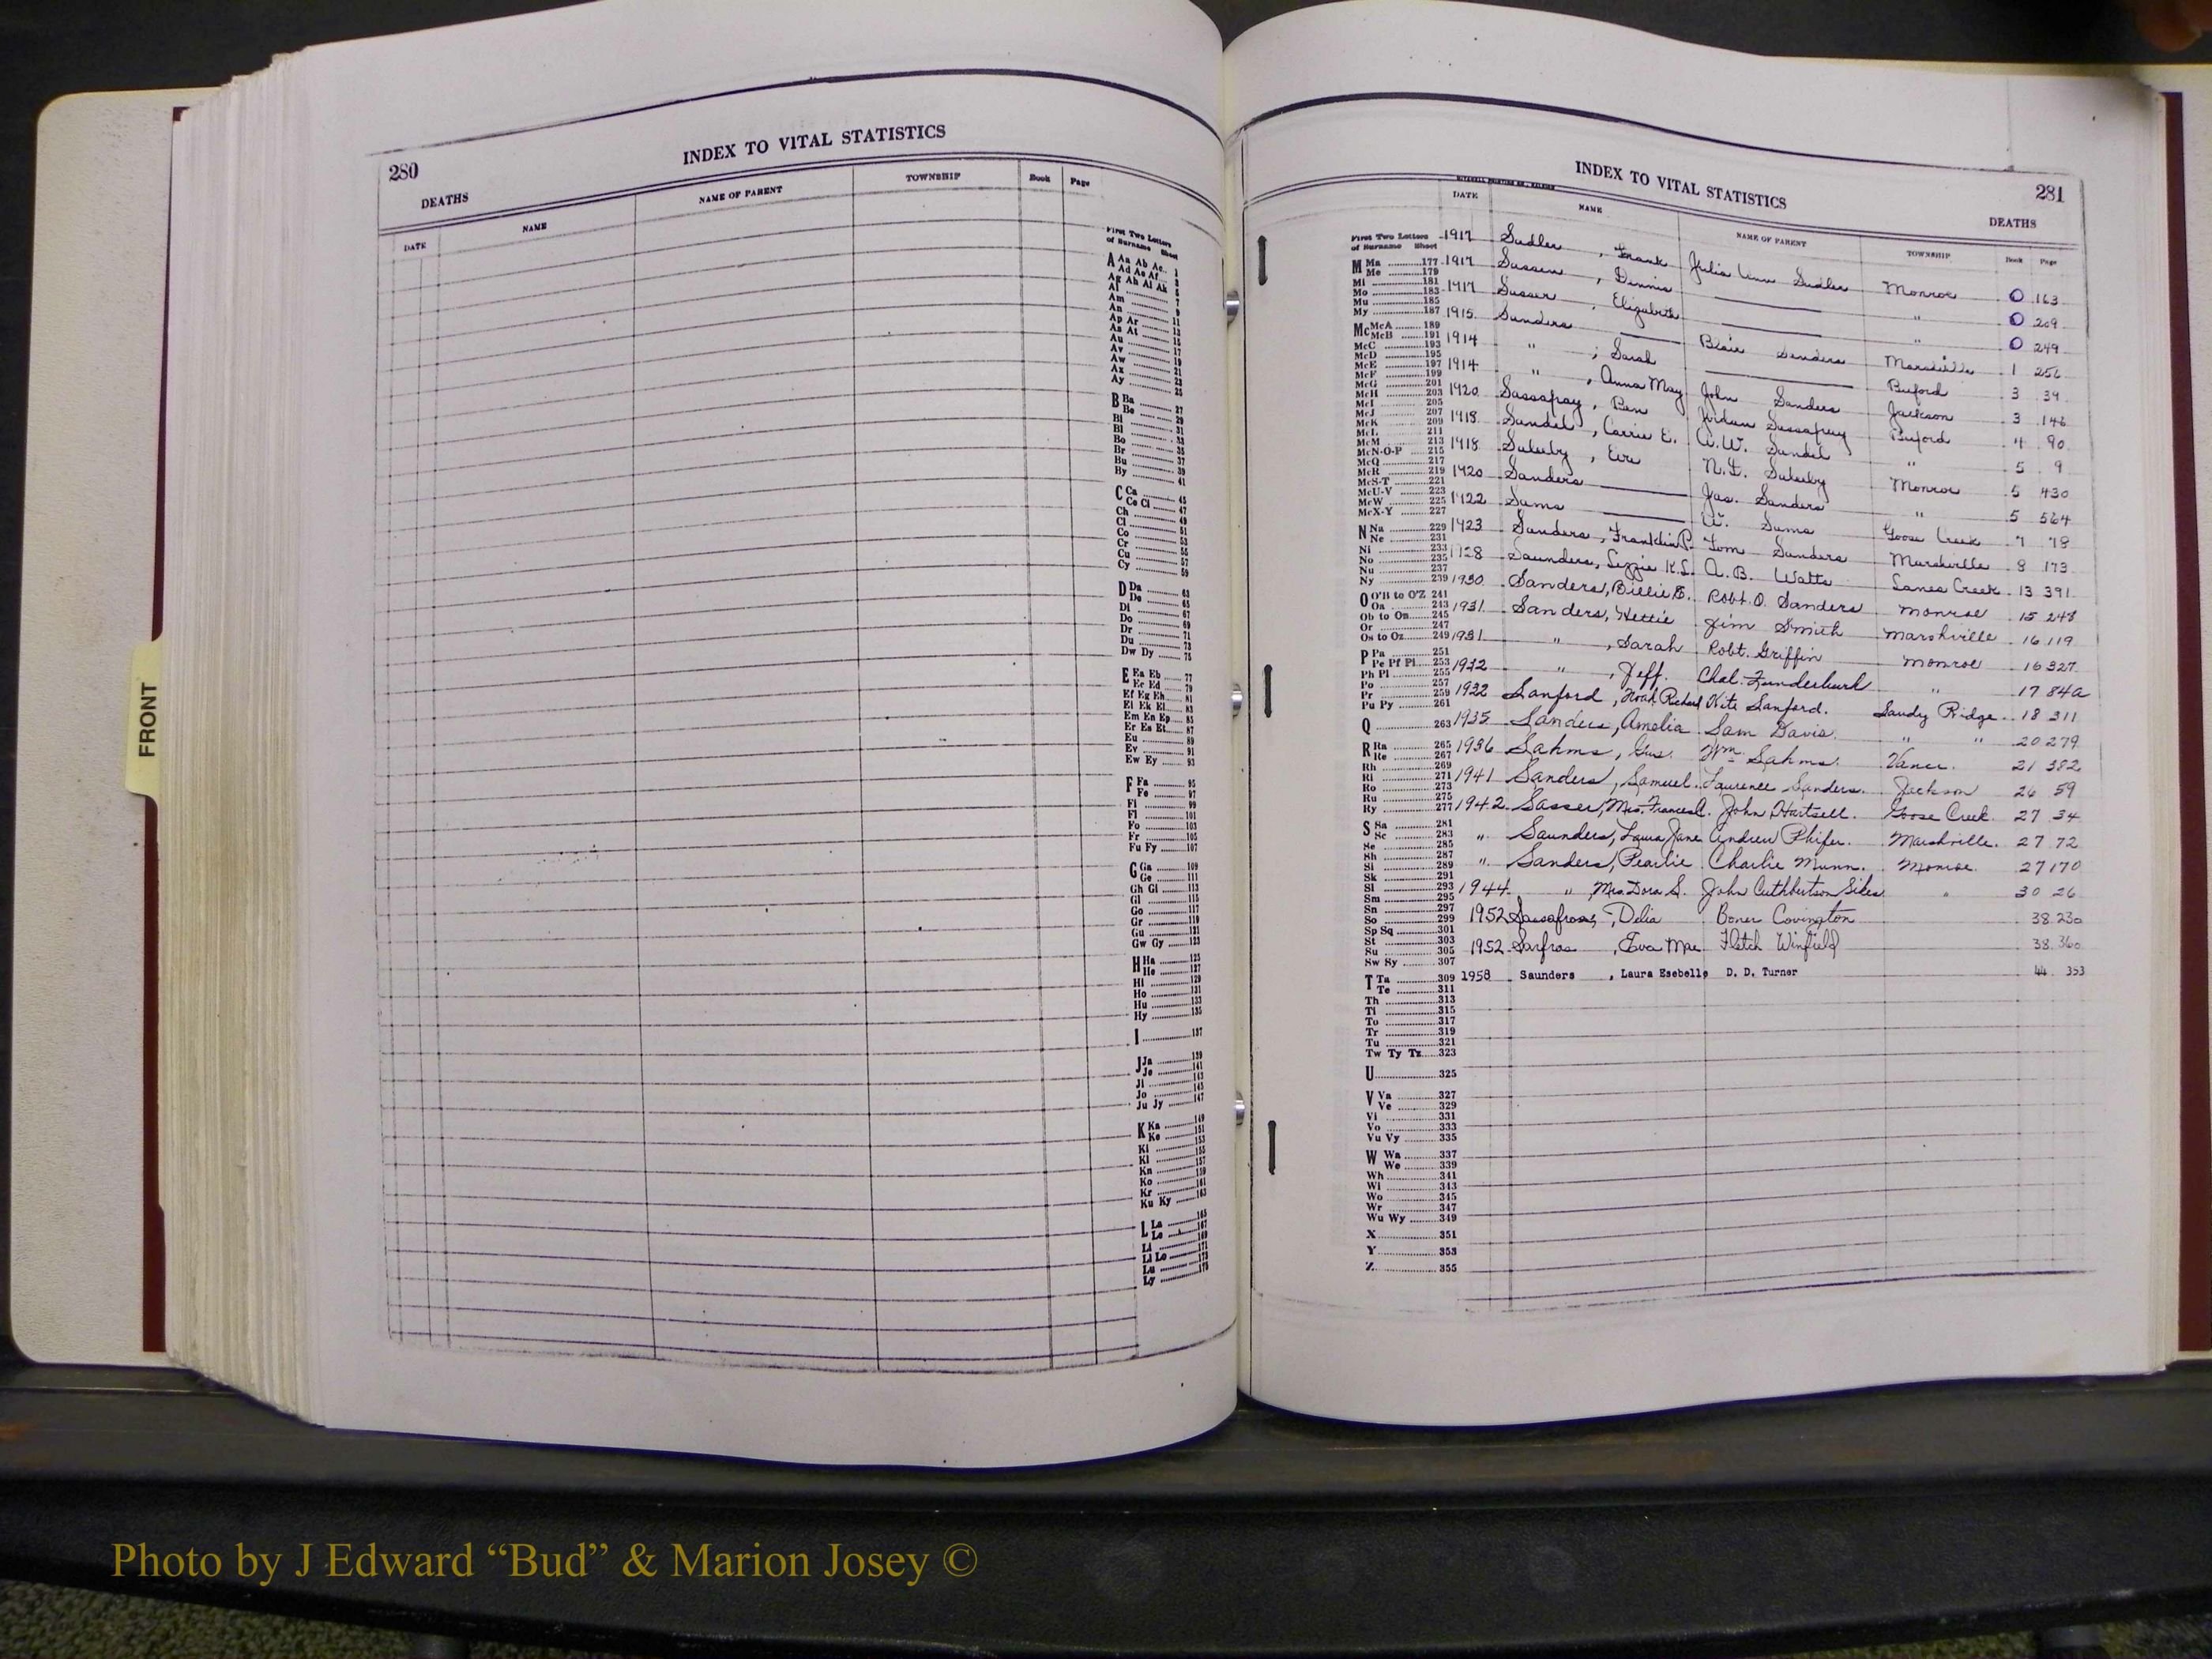 280
INDEX TO VITAL STATISTICS
DEATHS
DATE NAME NAME OF PARENT TOWNSHIP Book Page
First Two Letters
of Surname Sheet
A Aa Ab Ac 1
Ad Ae Af
Ag Ah Ai Ak
Al
Am
An
Ap Ar 11
As At
Au
Av
Aw
Ax
Ay
B Ba 27
Be 29
Bi 31
Bl 33
Bo 35
Br
Bu 39
By 41
C Ca 45
Ce Ci 47
Ch 49
Cl 51
Co 53
Cr 55
Cu 57
Cy 59
D Da 63
De 65
Di 67
Do 69
Dr 71
Du 73
Dw Dy 75
E Ea Eb 77
Ec Ed 79
Ef Eg Eh 81
Ei Ek El 83
Em En Ep 85
Er Es Et 87
Eu 89
Ev 91
Ew Ey 93
F Fa 95
Fe 97
Fi 99
Fl 101
Fo 103
Fr 105
Fu Fy 107
G Ga 109
Ge 111
Gh Gi 113
Gl 115
Go 117
Gr 119
Gu 121
Gw Gy 123
H Ha 125
He 127
Hi 129
Ho 131
Hu 133
Hy 135
I 137
J Ja 139
Je 141
Ji 143
Jo 145
Ju Jy 147
K Ka 149
Ke 151
Ki 153
Kl 155
Kn 157
Ko 159
Kr 161
Ku Ky 163
L La 165
Le 167
Li 169
Ll Lo 171
Lu 173
Ly 175
INDEX TO VITAL STATISTICS
281
DEATHS
DATE NAME NAME OF PARENT TOWNSHIP Book Page
First Two Letters
of Surname Sheet
M Ma 177
Me 179
Mi 181
Mo 183
Mu 185
My 187
Mc McA 189
McB 191
McC 193
McD 195
McE 197
McF 199
McG 201
McH 203
McI 205
McJ 207
McK 209
McL 211
McM 213
McN-O-P 215
McQ 217
McR 219
McS-T 221
McU-V 223
McW 225
McX-Y 227
N Na 229
Ne 231
Ni 233
No 235
Nu 237
Ny 239
O O'B to O'Z 241
Oa 243
Ob to On 245
Or 247
Os to Oz 249
P Pa 251
Pe Pf Pl 253
Ph Pi 255
Po 257
Pr 259
Pu Py 261
Q 263
R Ra 265
Re 267
Rh 269
Ri 271
Ro 273
Ru 275
Ry 277
S Sa 281
Sc 283
Se 285
Sh 287
Si 289
Sk 291
Sl 293
Sm 295
Sn 297
So 299
Sp Sq 301
St 303
Su 305
Sw Sy 307
T Ta 309
Te 311
Th 313
Ti 315
To 317
Tr 319
Tu 321
Tw Ty Tz 323
U 325
V Va 327
Ve 329
Vi 331
Vo 333
Vu Vy 335
W Wa 337
We 339
Wh 341
Wi 343
Wo 345
Wr 347
Wu Wy 349
X 351
Y 353
Z 355
1917 Sadler, Frank Julia Ann Sadler Monroe 0 163
1917 Dennis " 0 209
1917 Sasser, Elizabeth " 0 249
1915 Sanders Blair Sanders Marshville 1 256
1914 " , Sarah Buford 3 39
1914 " , Anna May John Sanders Jackson 3 146
1920 Sassafray, Ben Jordan Sassafray Buford 4 90
1918 Sandel, Carrie E. A. W. Sandel " 5 9
1918 Monroe 5 430
1920 Sanders Jas. Sanders " 5 564
1922 Sams Sams Goose Creek 7 78
1923 Sanders, Franklin P. Tom Sanders Marshville 8 173
1928 Saunders, Lizzie K.S. A. B. Watts Lanes Creek 13 391
1930 Sanders, Billie E. Robt. O. Sanders Monroe 15 248
1931 Sanders, Hettie Jim Smith Marshville 16 119
1931 " , Sarah Robt. Griffin Monroe 16 327
1932 " , Jeff. Chal. Funderburk " 17 84a
1932 Sanford, Noah Richard Kite Sanford. Sandy Ridge 18 311
1935 Sanders, Amelia Sam Davis. " " 20 279
1936 Sahms, Gus. Wm. Sahms. Vance. 21 382
1941 Sanders, Samuel. Laurence Sanders. Jackson 26 59
1942 Sasser, Mrs. Frances A. John Hartsell. Goose Creek. 27 34
" Saunders, Laura Jane Andrew Phifer. Marshville. 27 72
" Sanders, Pearlie Charlie Munn. Monroe. 27 170
1944 " , Mrs. Dora S. John Cuthbertson Sikes " 30 26
1952 Sassafrass, Delia Boner Covington 38 230
1952 Sarfras, Eva Mae Fletch Winfield 38 360
1958 Saunders , Laura Esebelle D. D. Turner 44 353
FRONT
Photo by J Edward “Bud” & Marion Josey ©